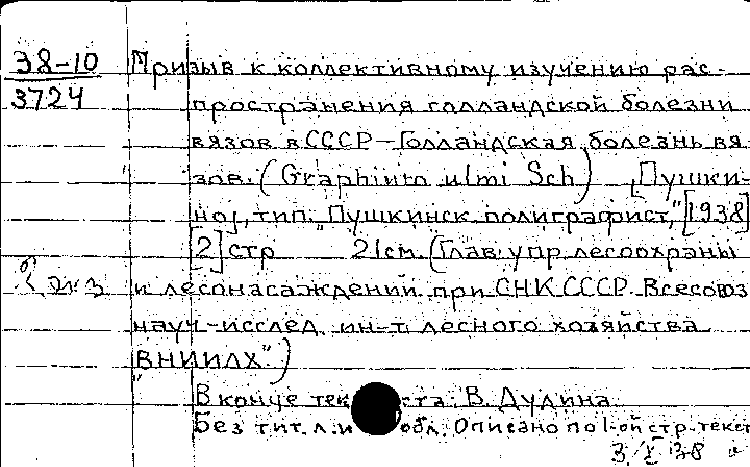 38-10 Призыв к коллективному изучению рас-
3724 пространения голландской болезни
вязов в СССР – Голландская болезнь вя
зов. (Graphium ulmi Sch) [Пушки-
но], тип. "Пушкинск. полиграфист", [1938]
[2] стр 21 см. (Глав. упр. лесоохраны
и лесонасаждений при СНК СССР. Всесоюз
науч-исслед. ин-т лесного хозяйства
"ВНИИЛХ")
В конце текста: В. Дудина
Без тит. л. и обл. Описано по 1-ой стр. текст